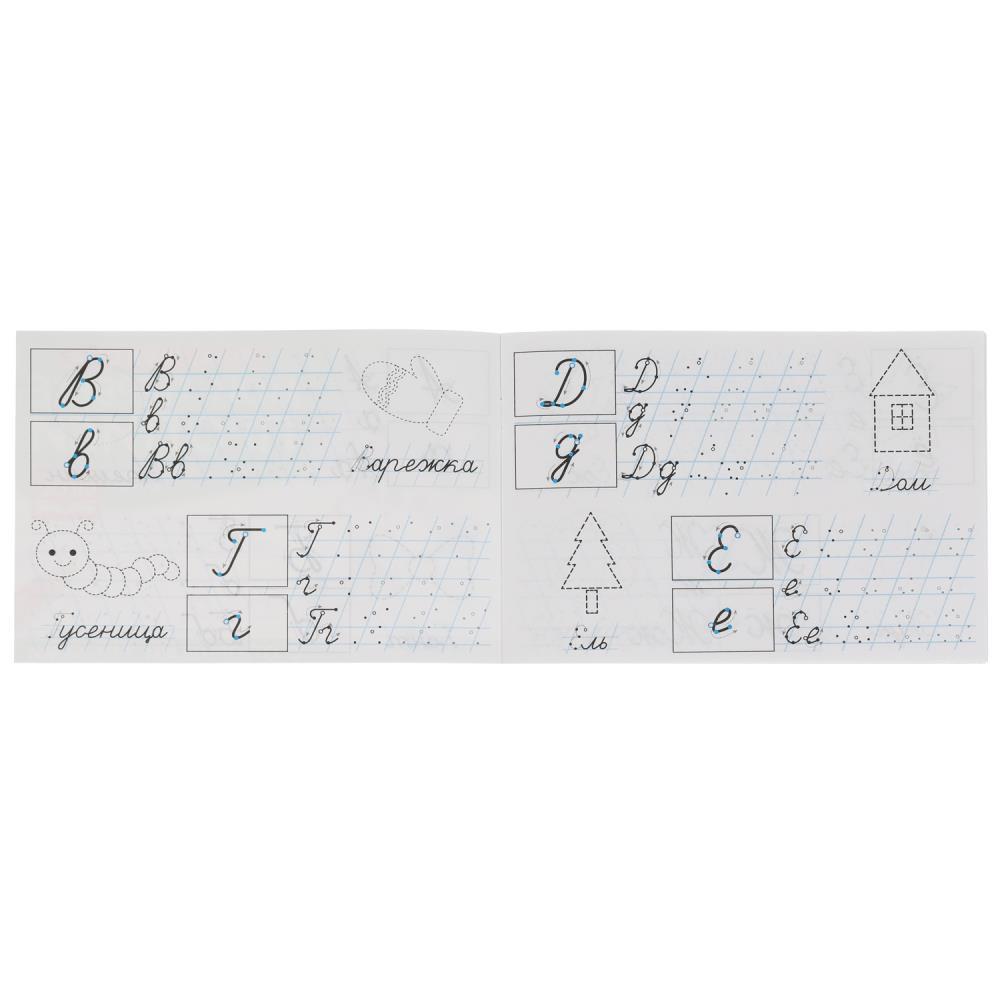 В
В
в
в
Вв
Варежка
Г
Г
г
г
Гг
Гусеница
Д
Д
д
д
Дд
Дом
Е
Е
е
е
Ее
Ель